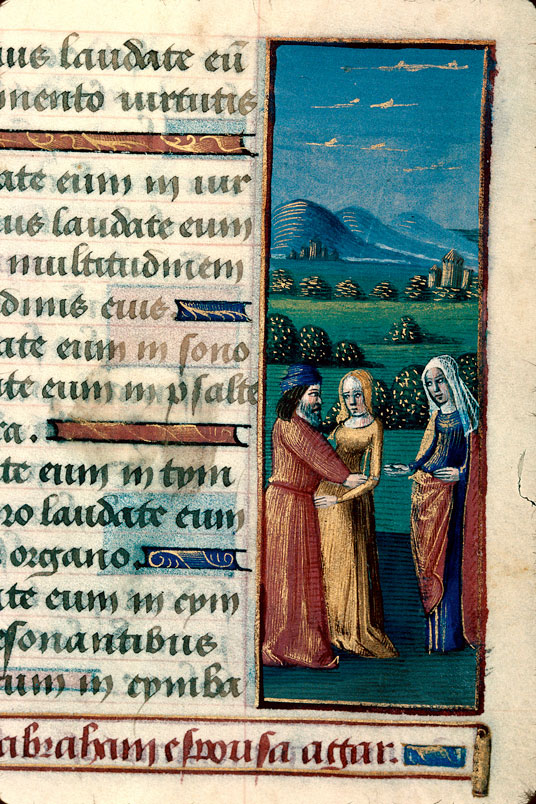 ius laudate eū
mento uirtutis
ate eum in uir
ius laudate eum
multitudinem
dinis eius
ate eum in sono
te eum in psalte
ea.
te eum in tym
ro laudate eum
organo.
te eum in cym
esonantibus
eum in cymba
abraham espousa agar.